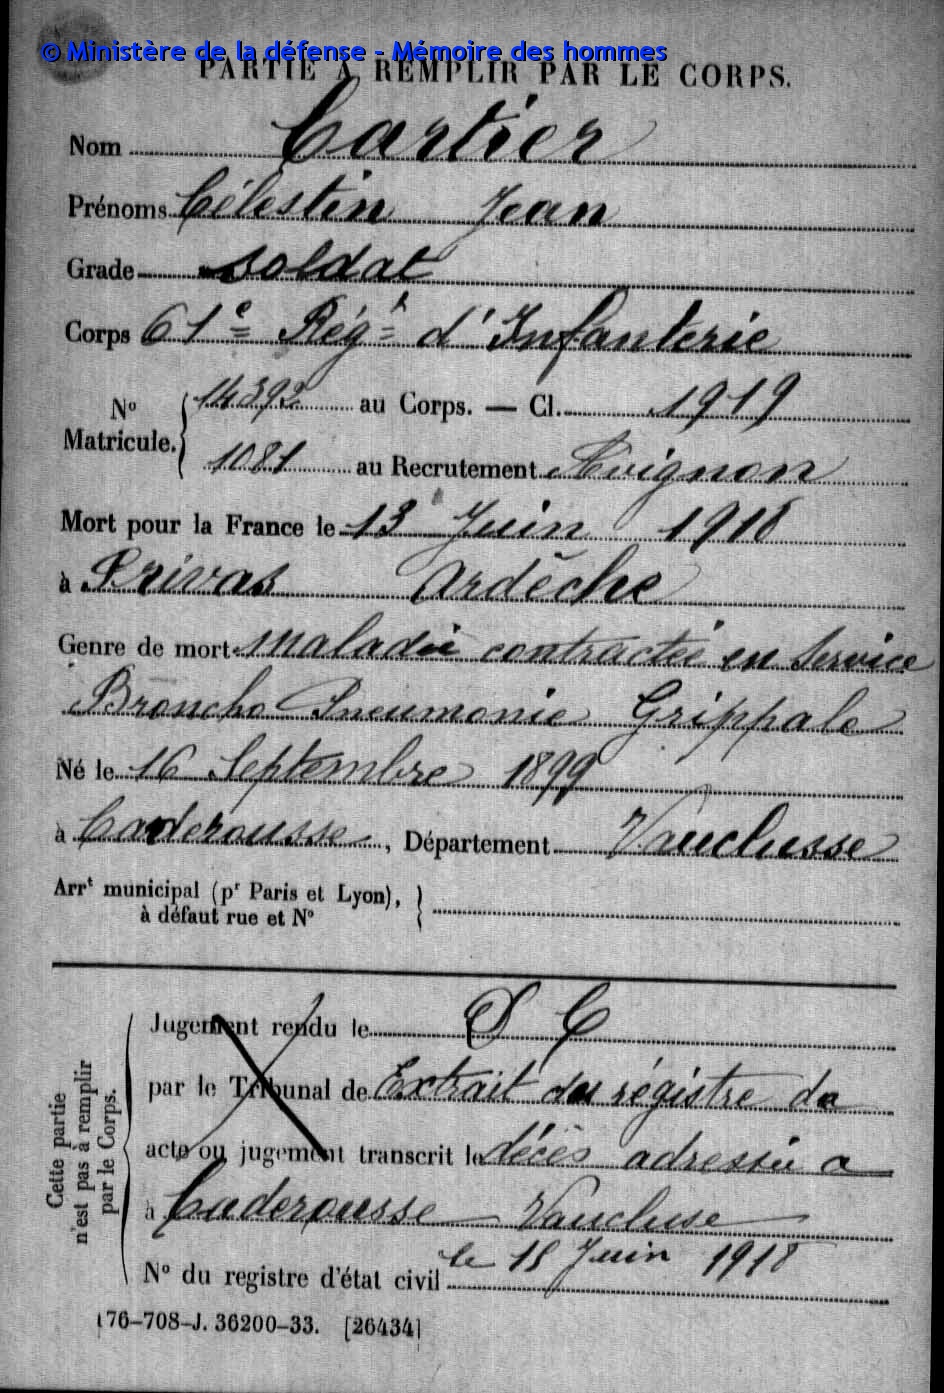 © Ministère de la défense - Mémoire des hommes
PARTIE À REMPLIR PAR LE CORPS.
Nom Cartier
Prénoms Célestin Jean
Grade soldat
Corps 61e Régt d'Infanterie
No Matricule. 14392 au Corps. — Cl. 1919
1081 au Recrutement Avignon
Mort pour la France le 13 Juin 1918
à Privas Ardèche
Genre de mort Maladie contractée en Service
Broncho Pneumonie Grippale
Né le 16 Septembre 1899
à Caderousse, Département Vauclusse
Arrt municipal (pr Paris et Lyon),
à défaut rue et No
Cette partie
n'est pas à remplir
par le Corps.
Jugement rendu le
par le Tribunal de Extrait du régistre de
acte ou jugement transcrit le décès adressé a
à Caderousse Vaucluse
le 18 Juin 1918
No du registre d'état civil
176-708-J. 36200-33. [26434]